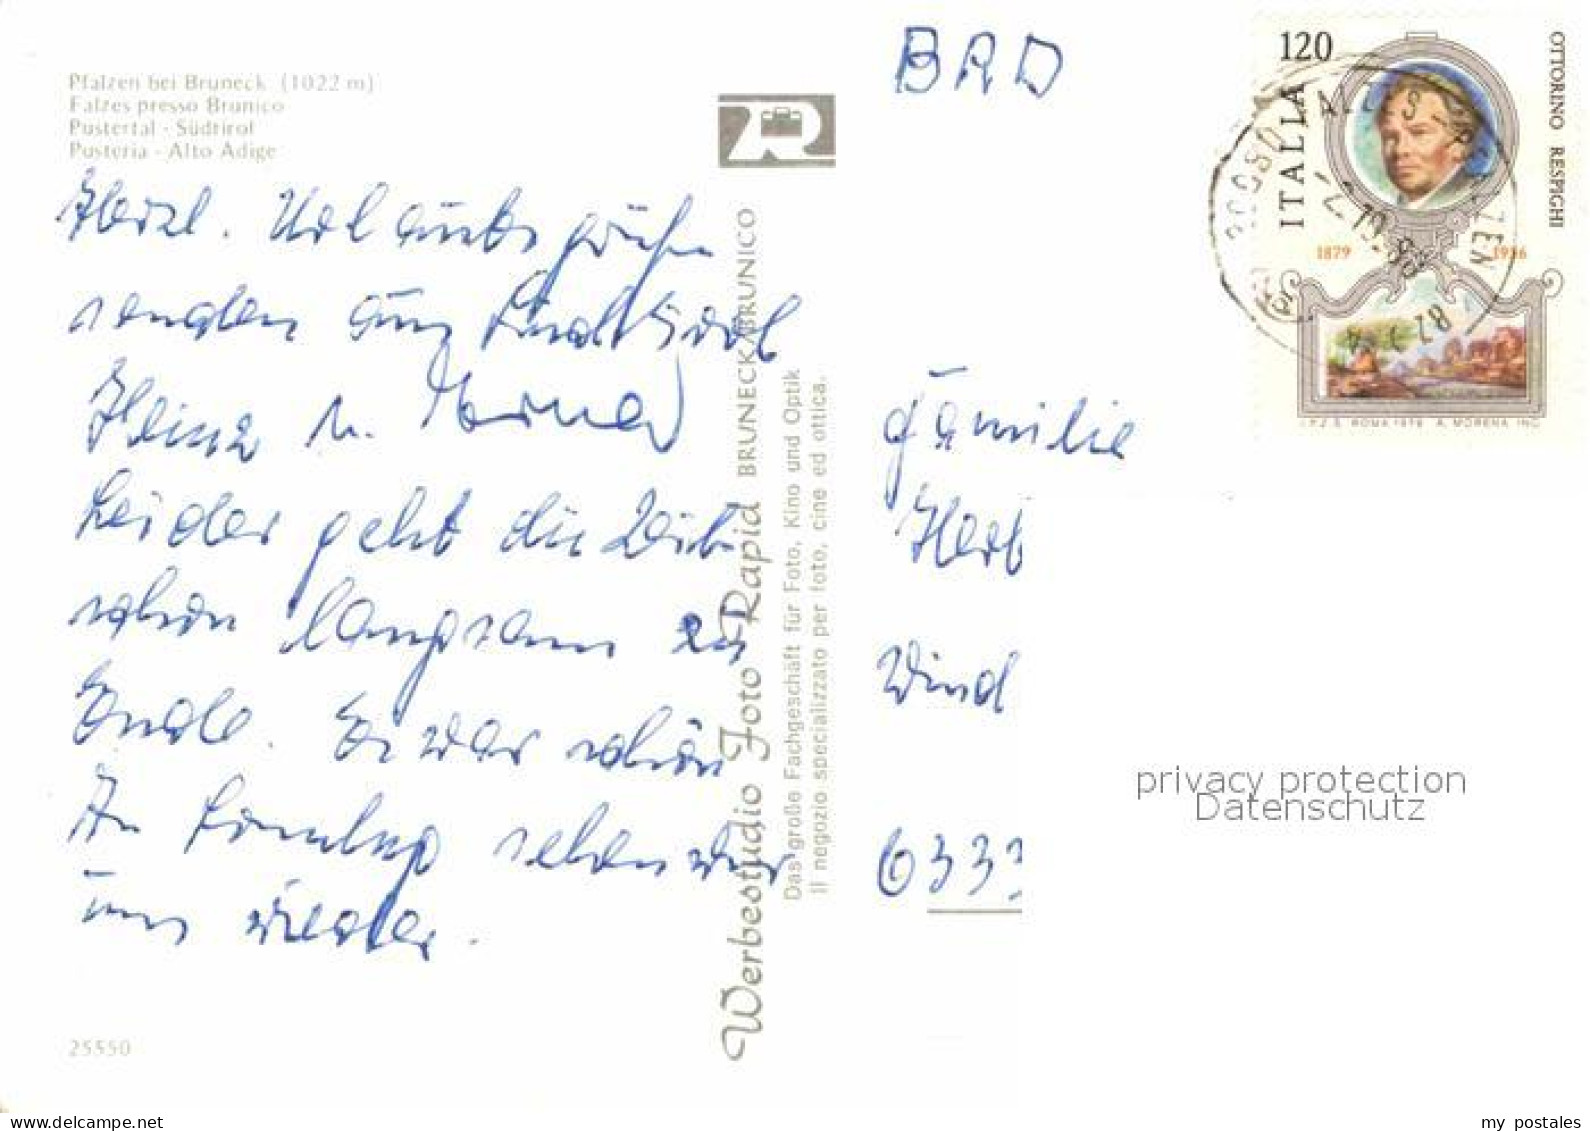 Pfalzen bei Bruneck (1022 m)
Falzes presso Brunico
Pustertal - Südtirol
Pusteria - Alto Adige
Herzl. Urlaubsgrüße
senden aus Südtirol
Heinz u.
Leider geht die Zeit
schon langsam zu
Ende. Es war schön
sehen wir
uns wieder.
25550
Werbestudio Foto Rapid BRUNECK/BRUNICO
Das große Fachgeschäft für Foto, Kino und Optik
Il negozio specializzato per foto, cine ed ottica.
BRD
Familie
Herb
Wind
6333
120
ITALIA
OTTORINO RESPIGHI
1879 1936
I.P.Z.S. ROMA 1979 A. MORENA INC.
privacy protection
Datenschutz
my postales